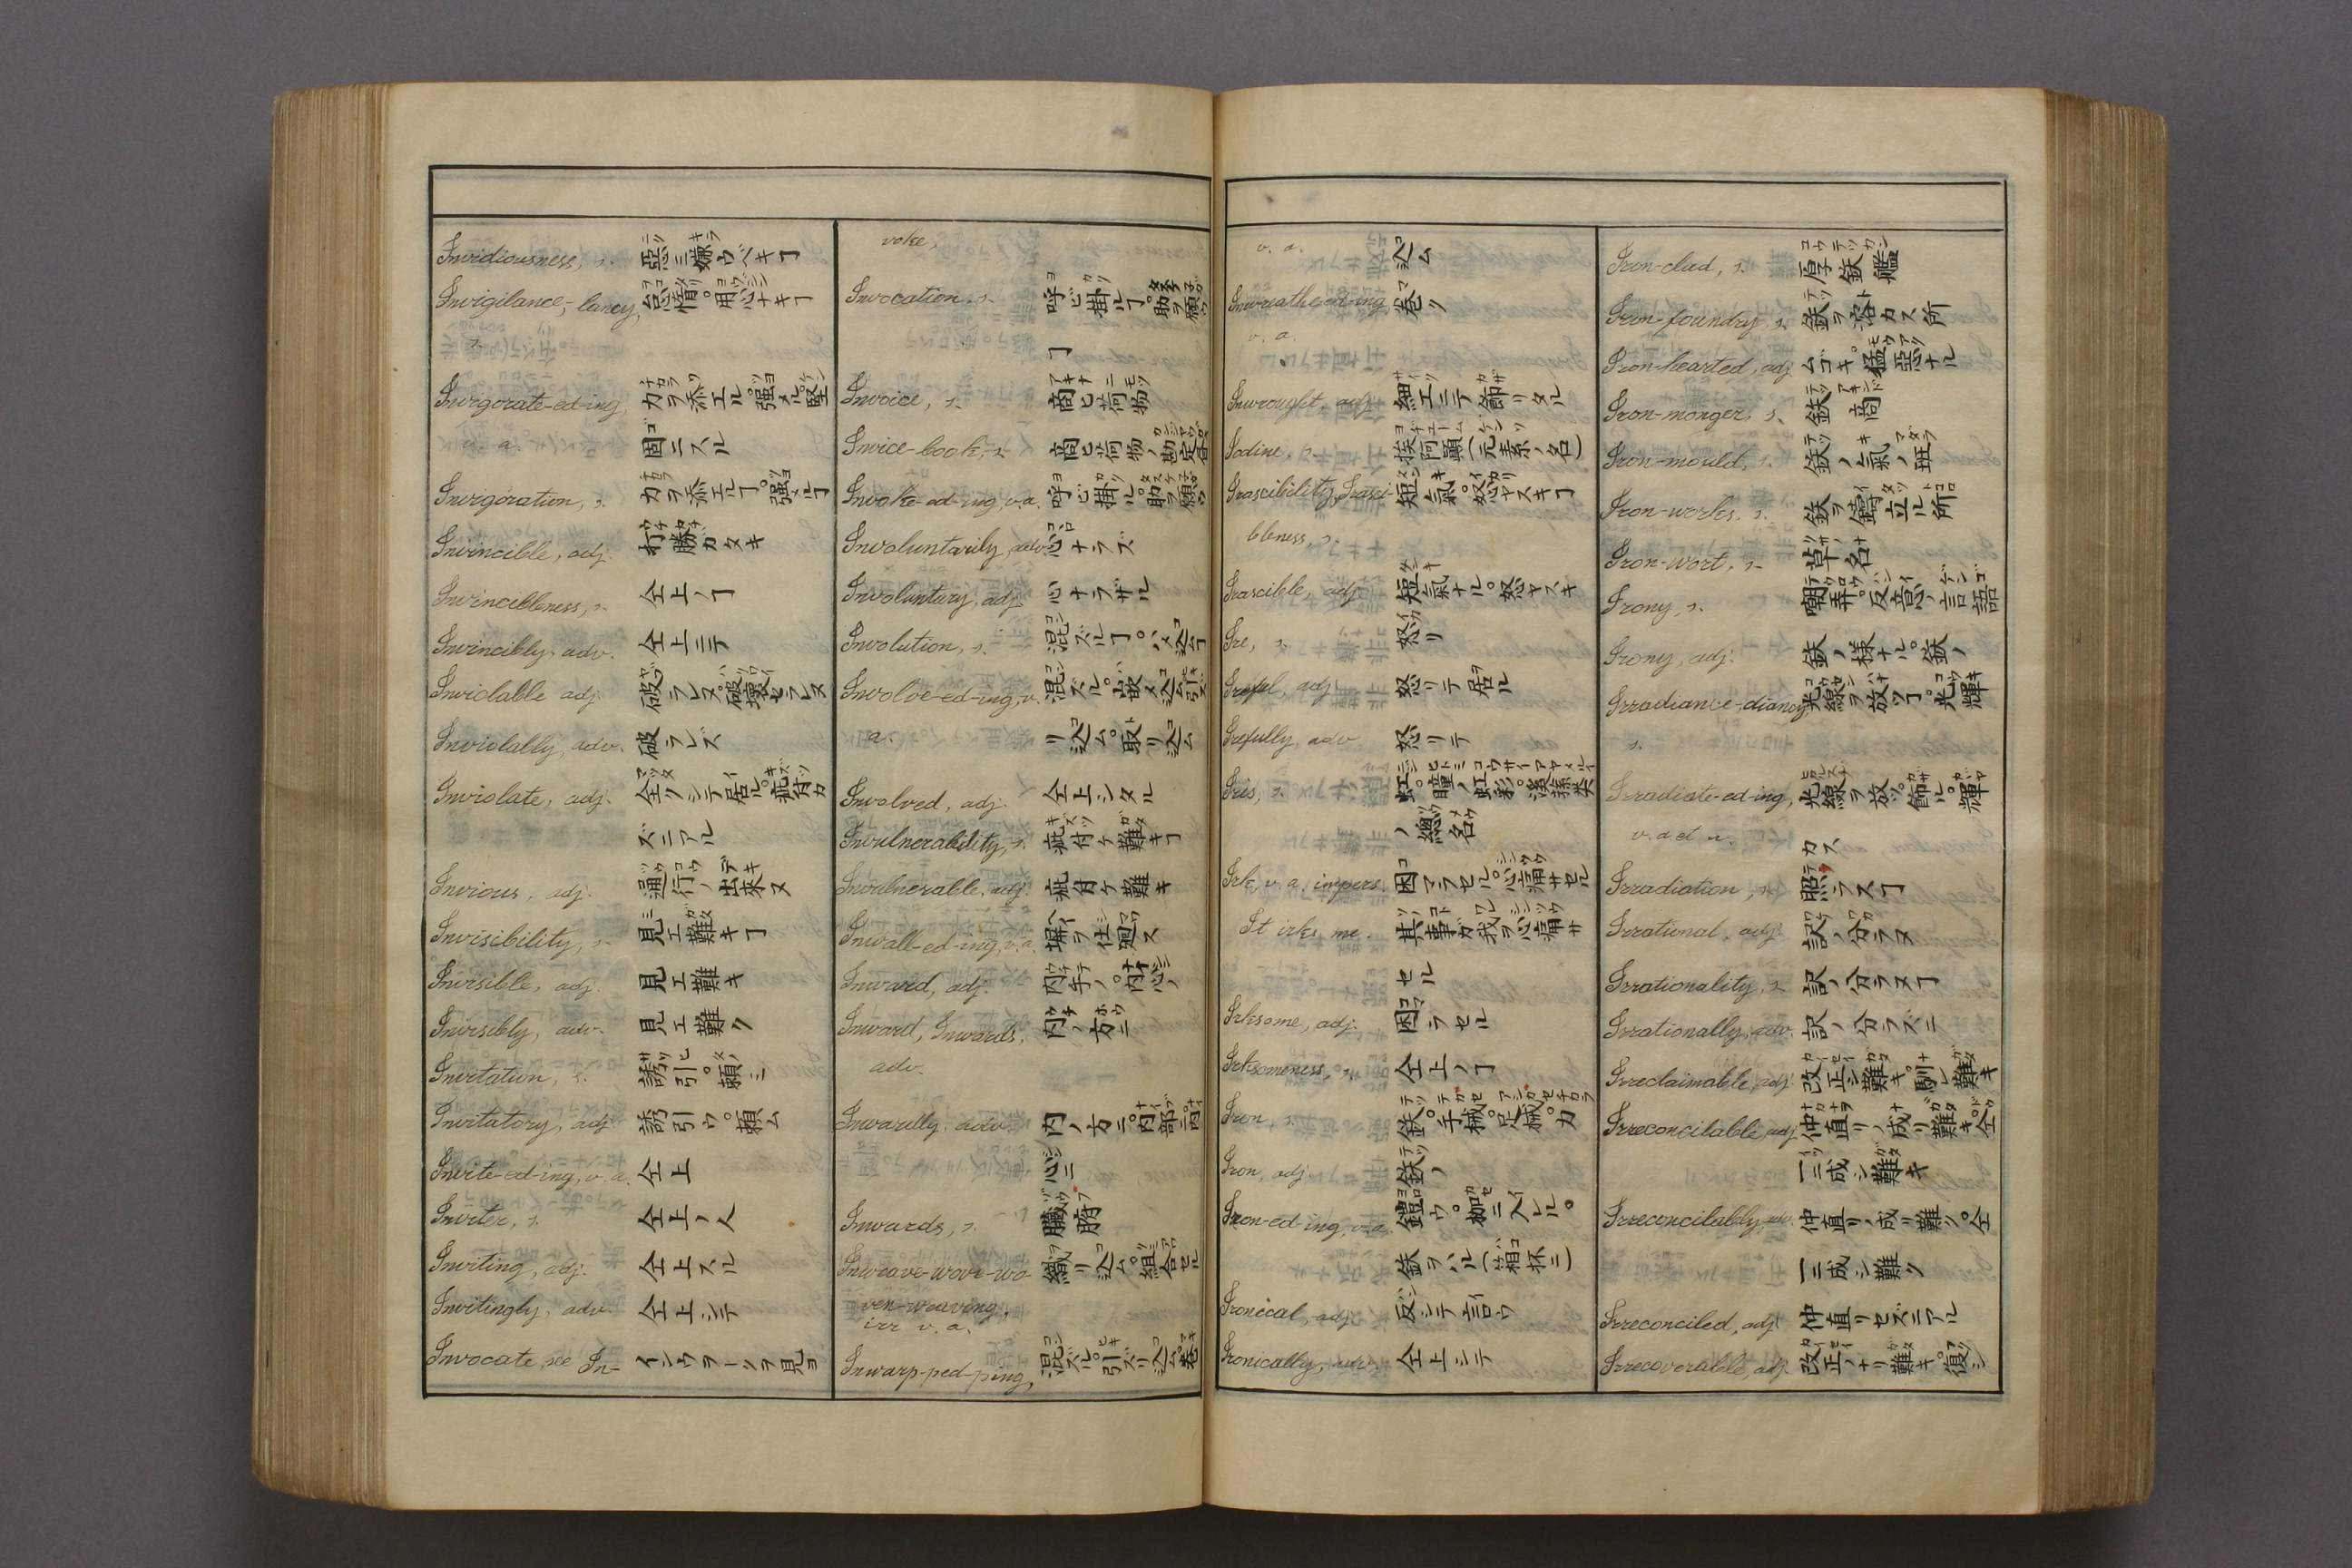 Invidiousness, s. 惡ニ嫌ウベキヿ
Invigilance,-lancy, 怠惰。用心ナキヿ
s.
Invigorate-ed-ing, 力ヲ添エル。强メル。堅
v. a. 固ニスル
Invigoration, s. 力ヲ添エルヿ。强メルヿ
Invincible, adj. 打勝ガタキ
Invincibleness, s. 仝上ノヿ
Invincibly, adv. 仝上ニテ
Inviolable adj. 破ラレヌ。破壊セラレヌ
Inviolably, adv. 破ラレズ
Inviolate, adj. 全クシテ居ル。疵付カ
ズニアル
Invious, adj. 通行ノ出來ヌ
Invisibility, s. 見エ難キヿ
Invisible, adj. 見エ難キ
Invisibly, adv. 見エ難ク
Invitation, s. 誘引。頼ミ
Invitatory, adj. 誘引ウ。頼ム
Invite-ed-ing, v. a. 仝上
Inviter, s. 仝上ノ人
Inviting, adj. 仝上スル
Invitingly, adv. 仝上シテ
Invocate, see In- インウヲーツヲ見ヨ
voke,
Invocation, s. 呼ビ掛ルヿ。助ヲ願ウ
ヿ
Invoice, s. 商ヒ荷物
Invice-book, s. 商ヒ荷物ノ勘定書
Invoke-ed-ing, v. a. 呼ビ掛ル。助ヲ願ウ
Involuntarily, adv. 心ナラズ
Involuntary, adj. 心ナラザル
Involution, s. 混ズルヿ。ハメ込ヿ
Involve-ed-ing, v. 混ズル。嵌メ込ム。引ズ
a. リ込ム。取リ込ム
Involved, adj. 仝上シタル
Invulnerability, s. 疵付ケ難キヿ
Invulnerable, adj. 疵付ケ難キ
Inwall-ed-ing, v. a. 塀ヲ仕廻ス
Inward, adj. 内手ノ。内心ノ
Inward, Inwards, 内ノ方ニ
adv.
Inwardly, adv. 内ノ方ニ。内部ニ。内
心ニ
Inwards, s. 臓腑
Inweave-wove-wo- 織リ込ム。組合セル
ven-weaving,
irr v. a.
Inwarp-ped-ping, 混ズル。引ズリ込ム。巻
v. a. 込ム
Inwreathe-ed-ing 巻ク
v. a.
Inwrought, adj. 細工ニテ飾リタル
Iodine, s. 挨阿顚(元素ノ名)
Irascibility, Irasci- 短氣。怒ヤスキヿ
bleness, s.
Irascible, adj. 短氣ナル。怒ヤスキ
Ire, s. 怒リ
Ireful, adj. 怒リテ居ル
Irefully, adv 怒リテ
Iris, s. 虹。瞳ノ虹彩。
ノ總名
Irk, v. a. impers. 困マラセル。心痛サセル
It irks me. 其事ガ我ヲ心痛サ
セル
Irksome, adj. 困ラセル
Irksomeness, s. 仝上ノヿ
Iron, s. 鉄。手械。足械。力
Iron, adj. 鉄ノ
Iron-ed-ing, v. a. 鎧ウ。枷ニ入レル。
鉄ヲハル(箱抔ニ)
Ironical, adj. 反シテ言ウ
Ironically, adv. 仝上シテ
Iron-clad, s. 厚鉄艦
Iron-foundry, s. 鉄ヲ溶カス所
Iron-hearted, adj. ムゴキ。猛惡ナル
Iron-monger, s. 鉄商
Iron-mould, s. 鉄ノ氣ノ班
Iron-works. s. 鉄ヲ鑄立ル所
Iron-wort, s. 草名
Irony, s. 嘲弄。反意ノ言語
Irony, adj. 鉄ノ様ナル。鉄ノ
Irradiance-diancy, 光線ヲ放ツヿ。光輝
s.
Irradiate-ed-ing, 光線ヲ放ツ。飾ル。輝
v. a. et n. カス
Irradiation, s. 照ラスヿ
Irrational, adj. 訳ノ分ラヌ
Irrationality, s. 訳ノ分ラヌヿ
Irrationally, adv. 訳ノ分ラズニ
Irreclaimable, adj. 改正シ難キ。馴レ難キ
Irreconcilable, adj. 仲直リノ成リ難キ。仝
一ニ成シ難キ
Irreconcilably, adv. 仲直リノ成リ難ク。仝
一ニ成シ難ク
Irreconciled, adj. 仲直リセズニアル
Irrecoverable, adj. 改正ノナリ難キ。復シ